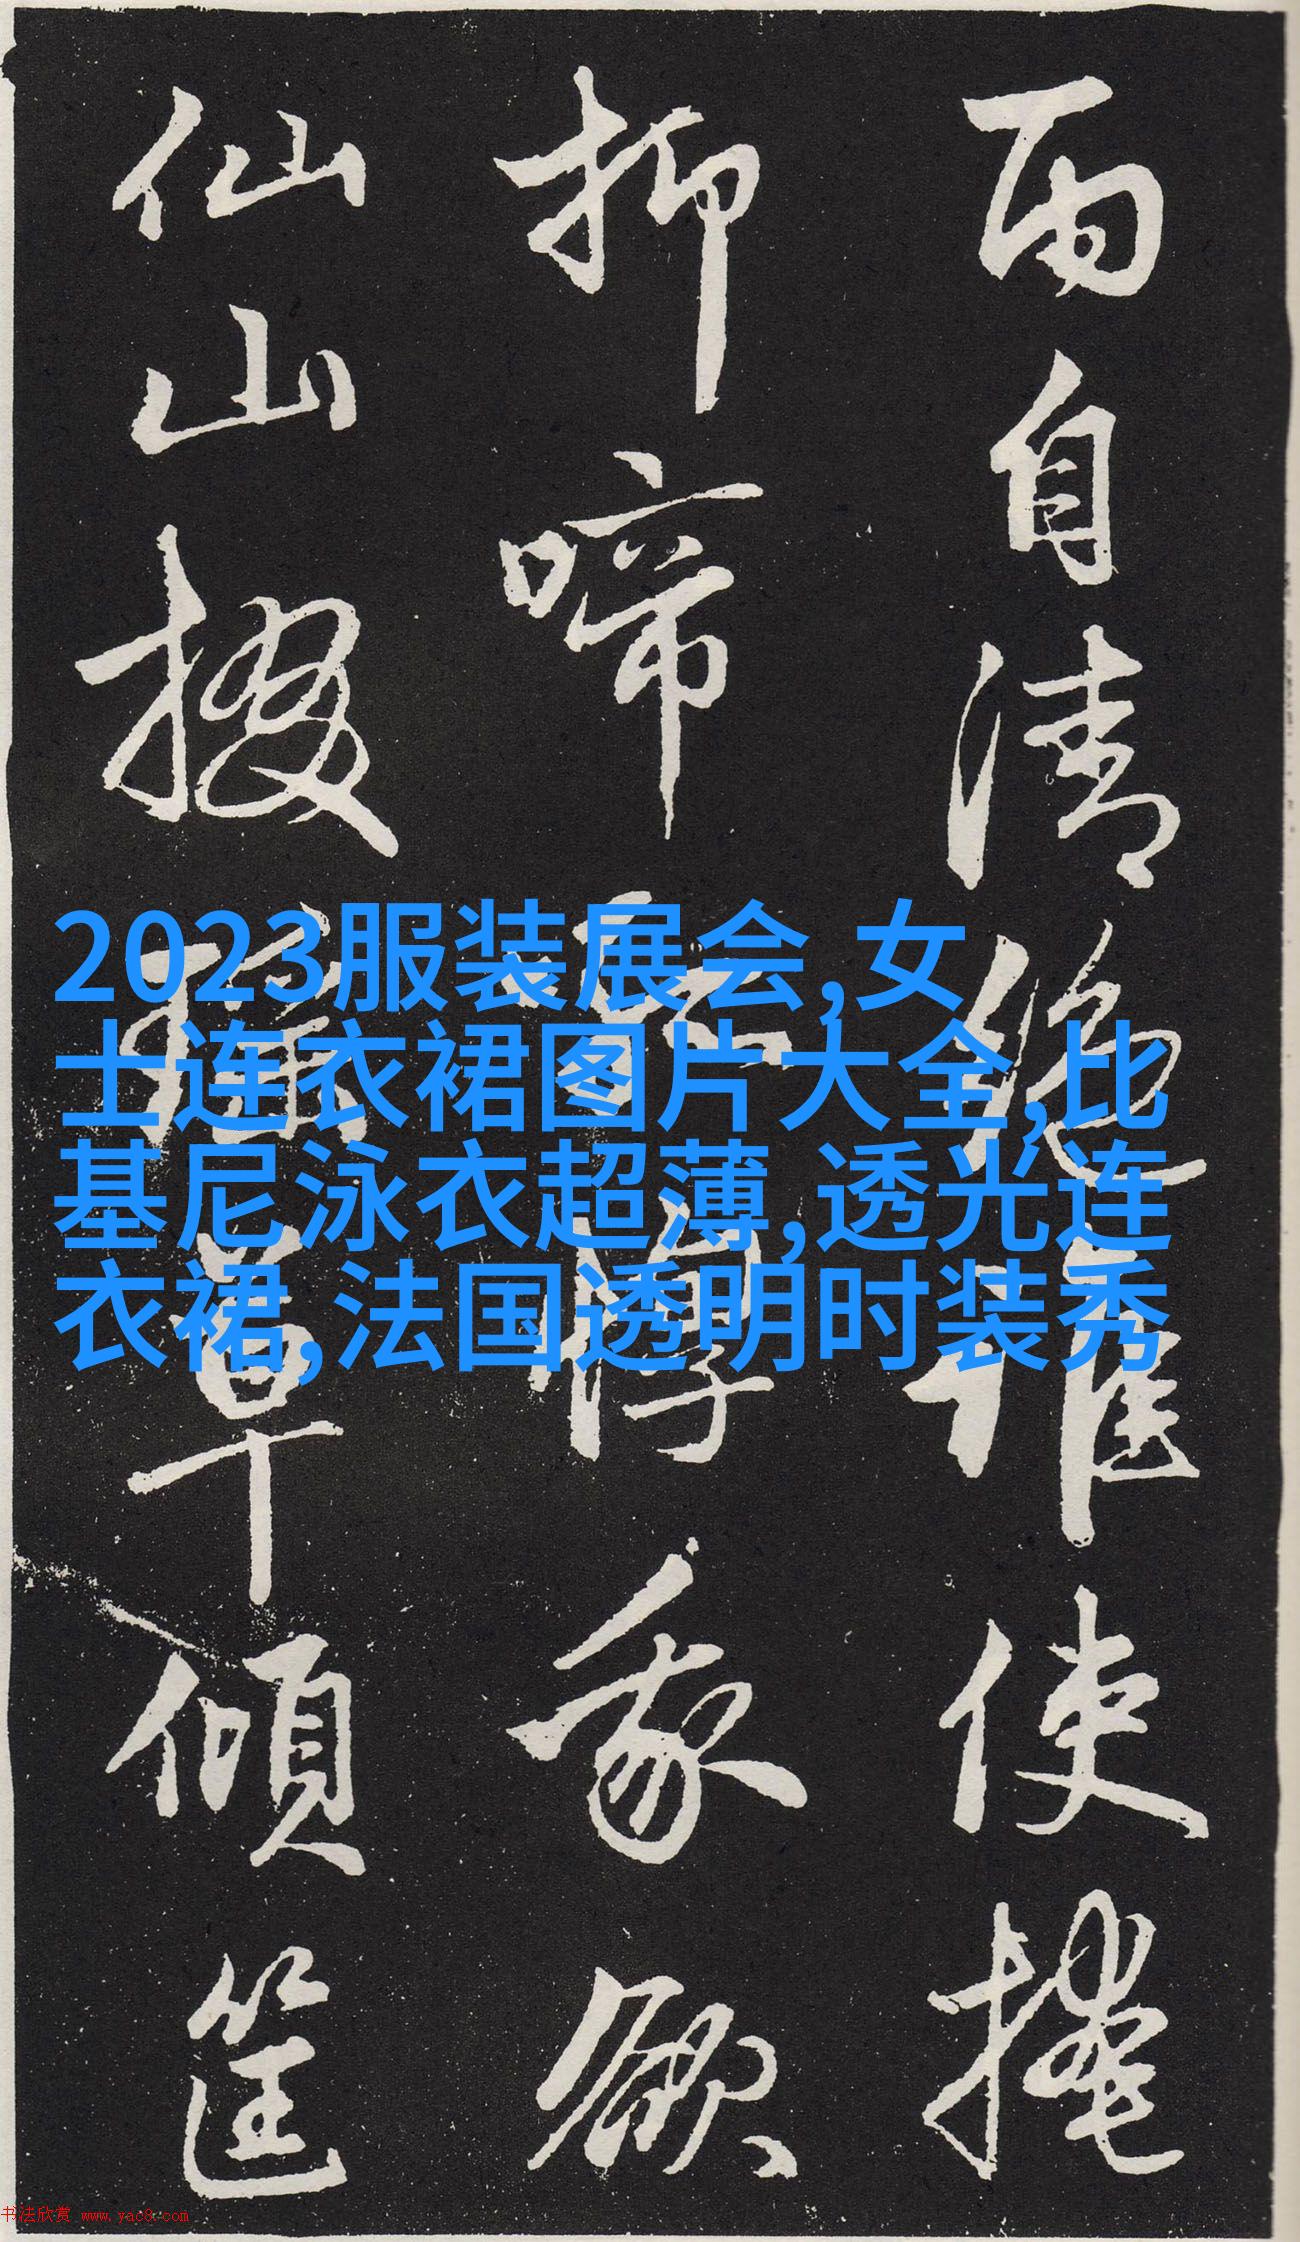 雨自清絕誰使掩
抑啼孤惸我欲
仙山掇瑤草傾筐
2023服装展会,女
士连衣裙图片大全,比
基尼泳衣超薄,透光连
衣裙,法国透明时装秀
书法欣赏 www.yac8.com